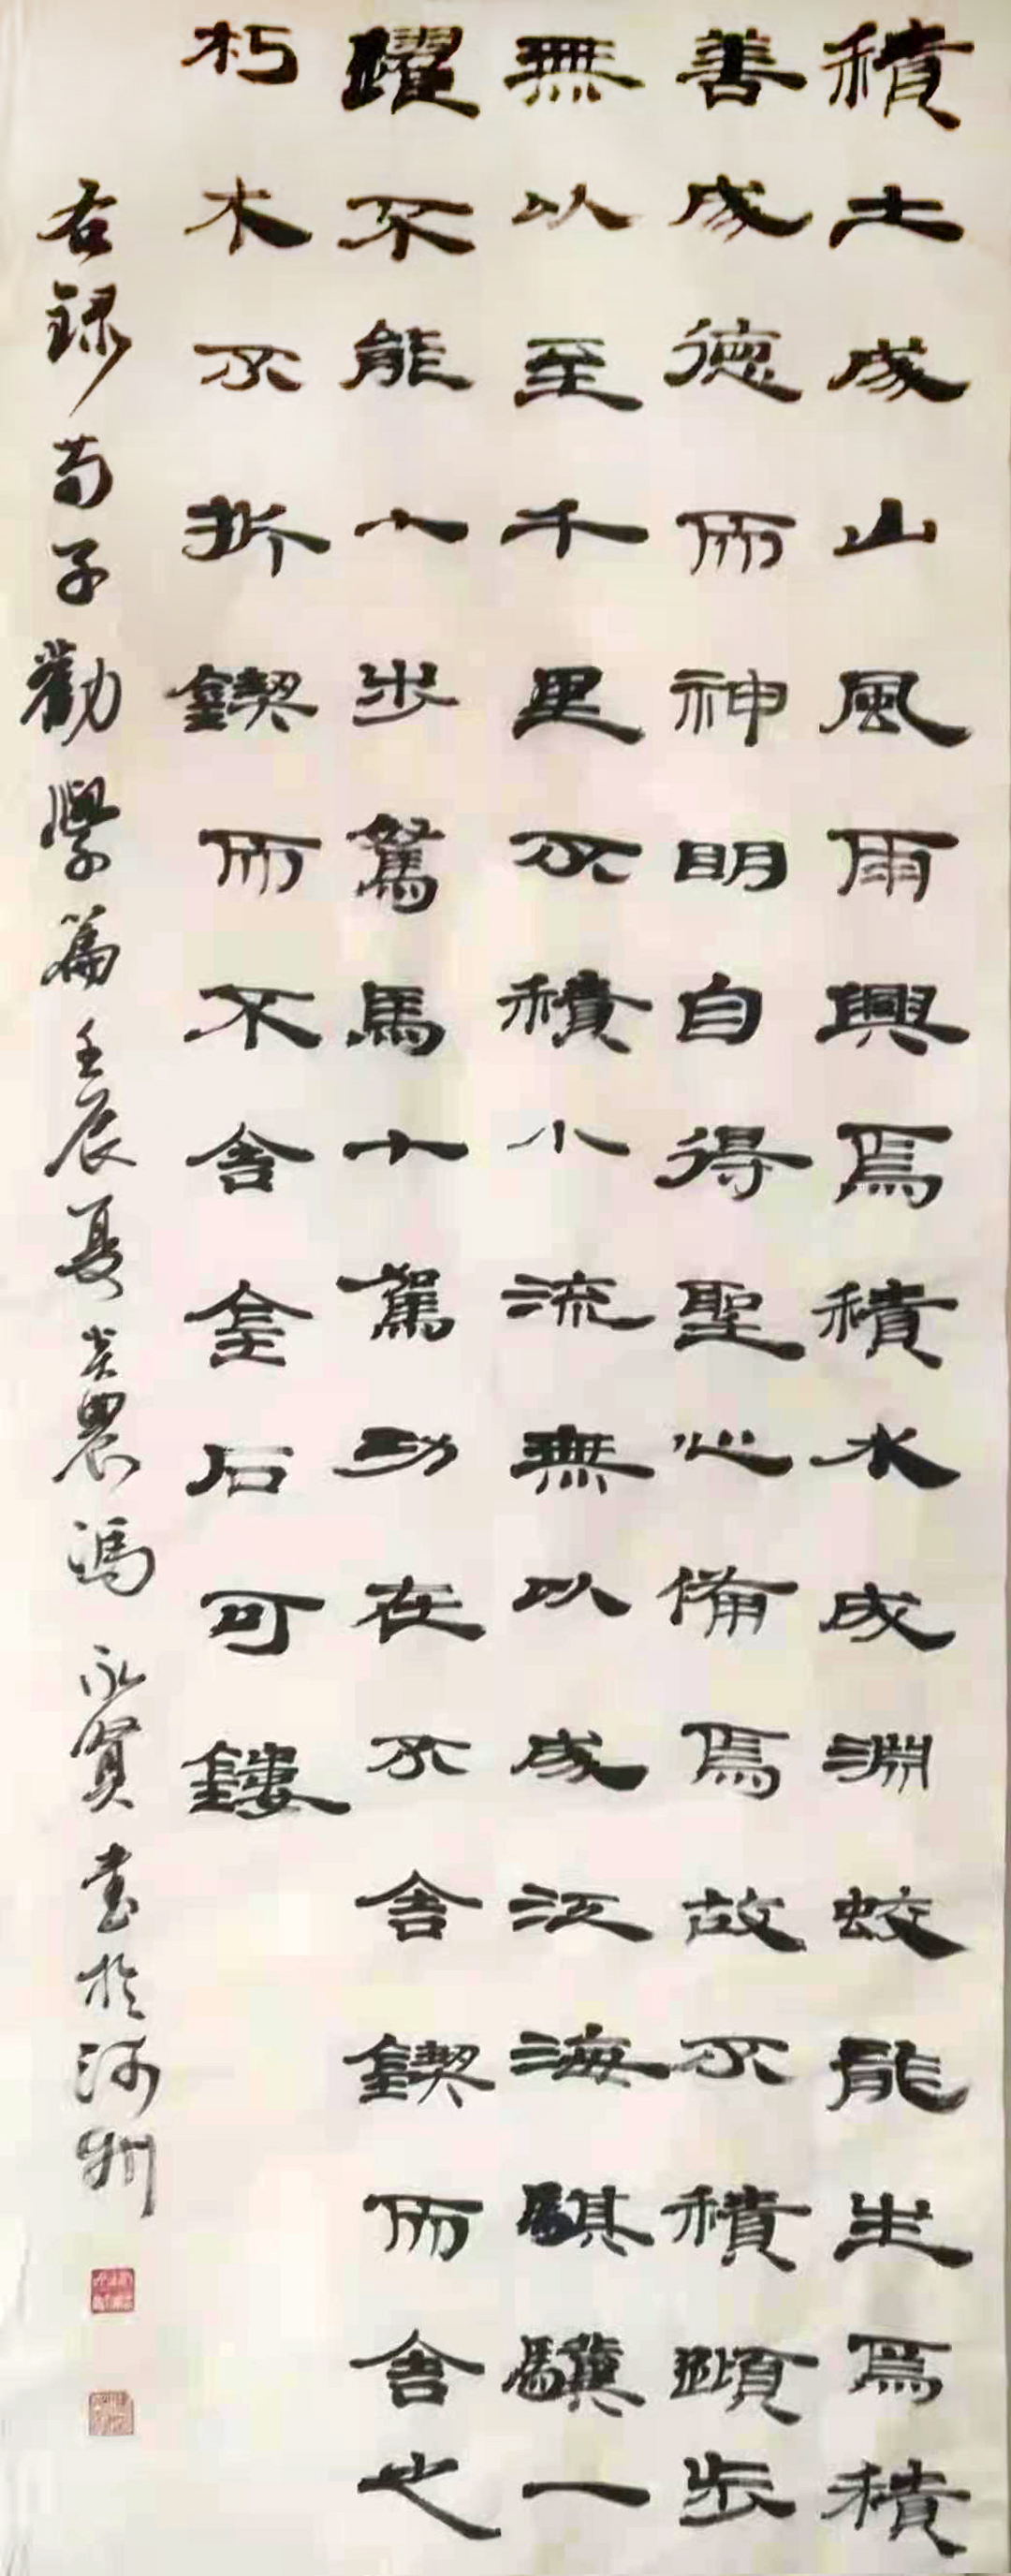 積土成山風雨興焉積水成淵蛟能生焉積
善成德而神明自得聖心備焉故不積蹞步
無以至千里不積小流無以成江海騏驥一
躍不能十步駑馬十駕功在不舍鍥而舍之
朽木不折鍥而不舍金石可鏤
右録荀子勸學篇壬辰夏農馮永賢書於河州